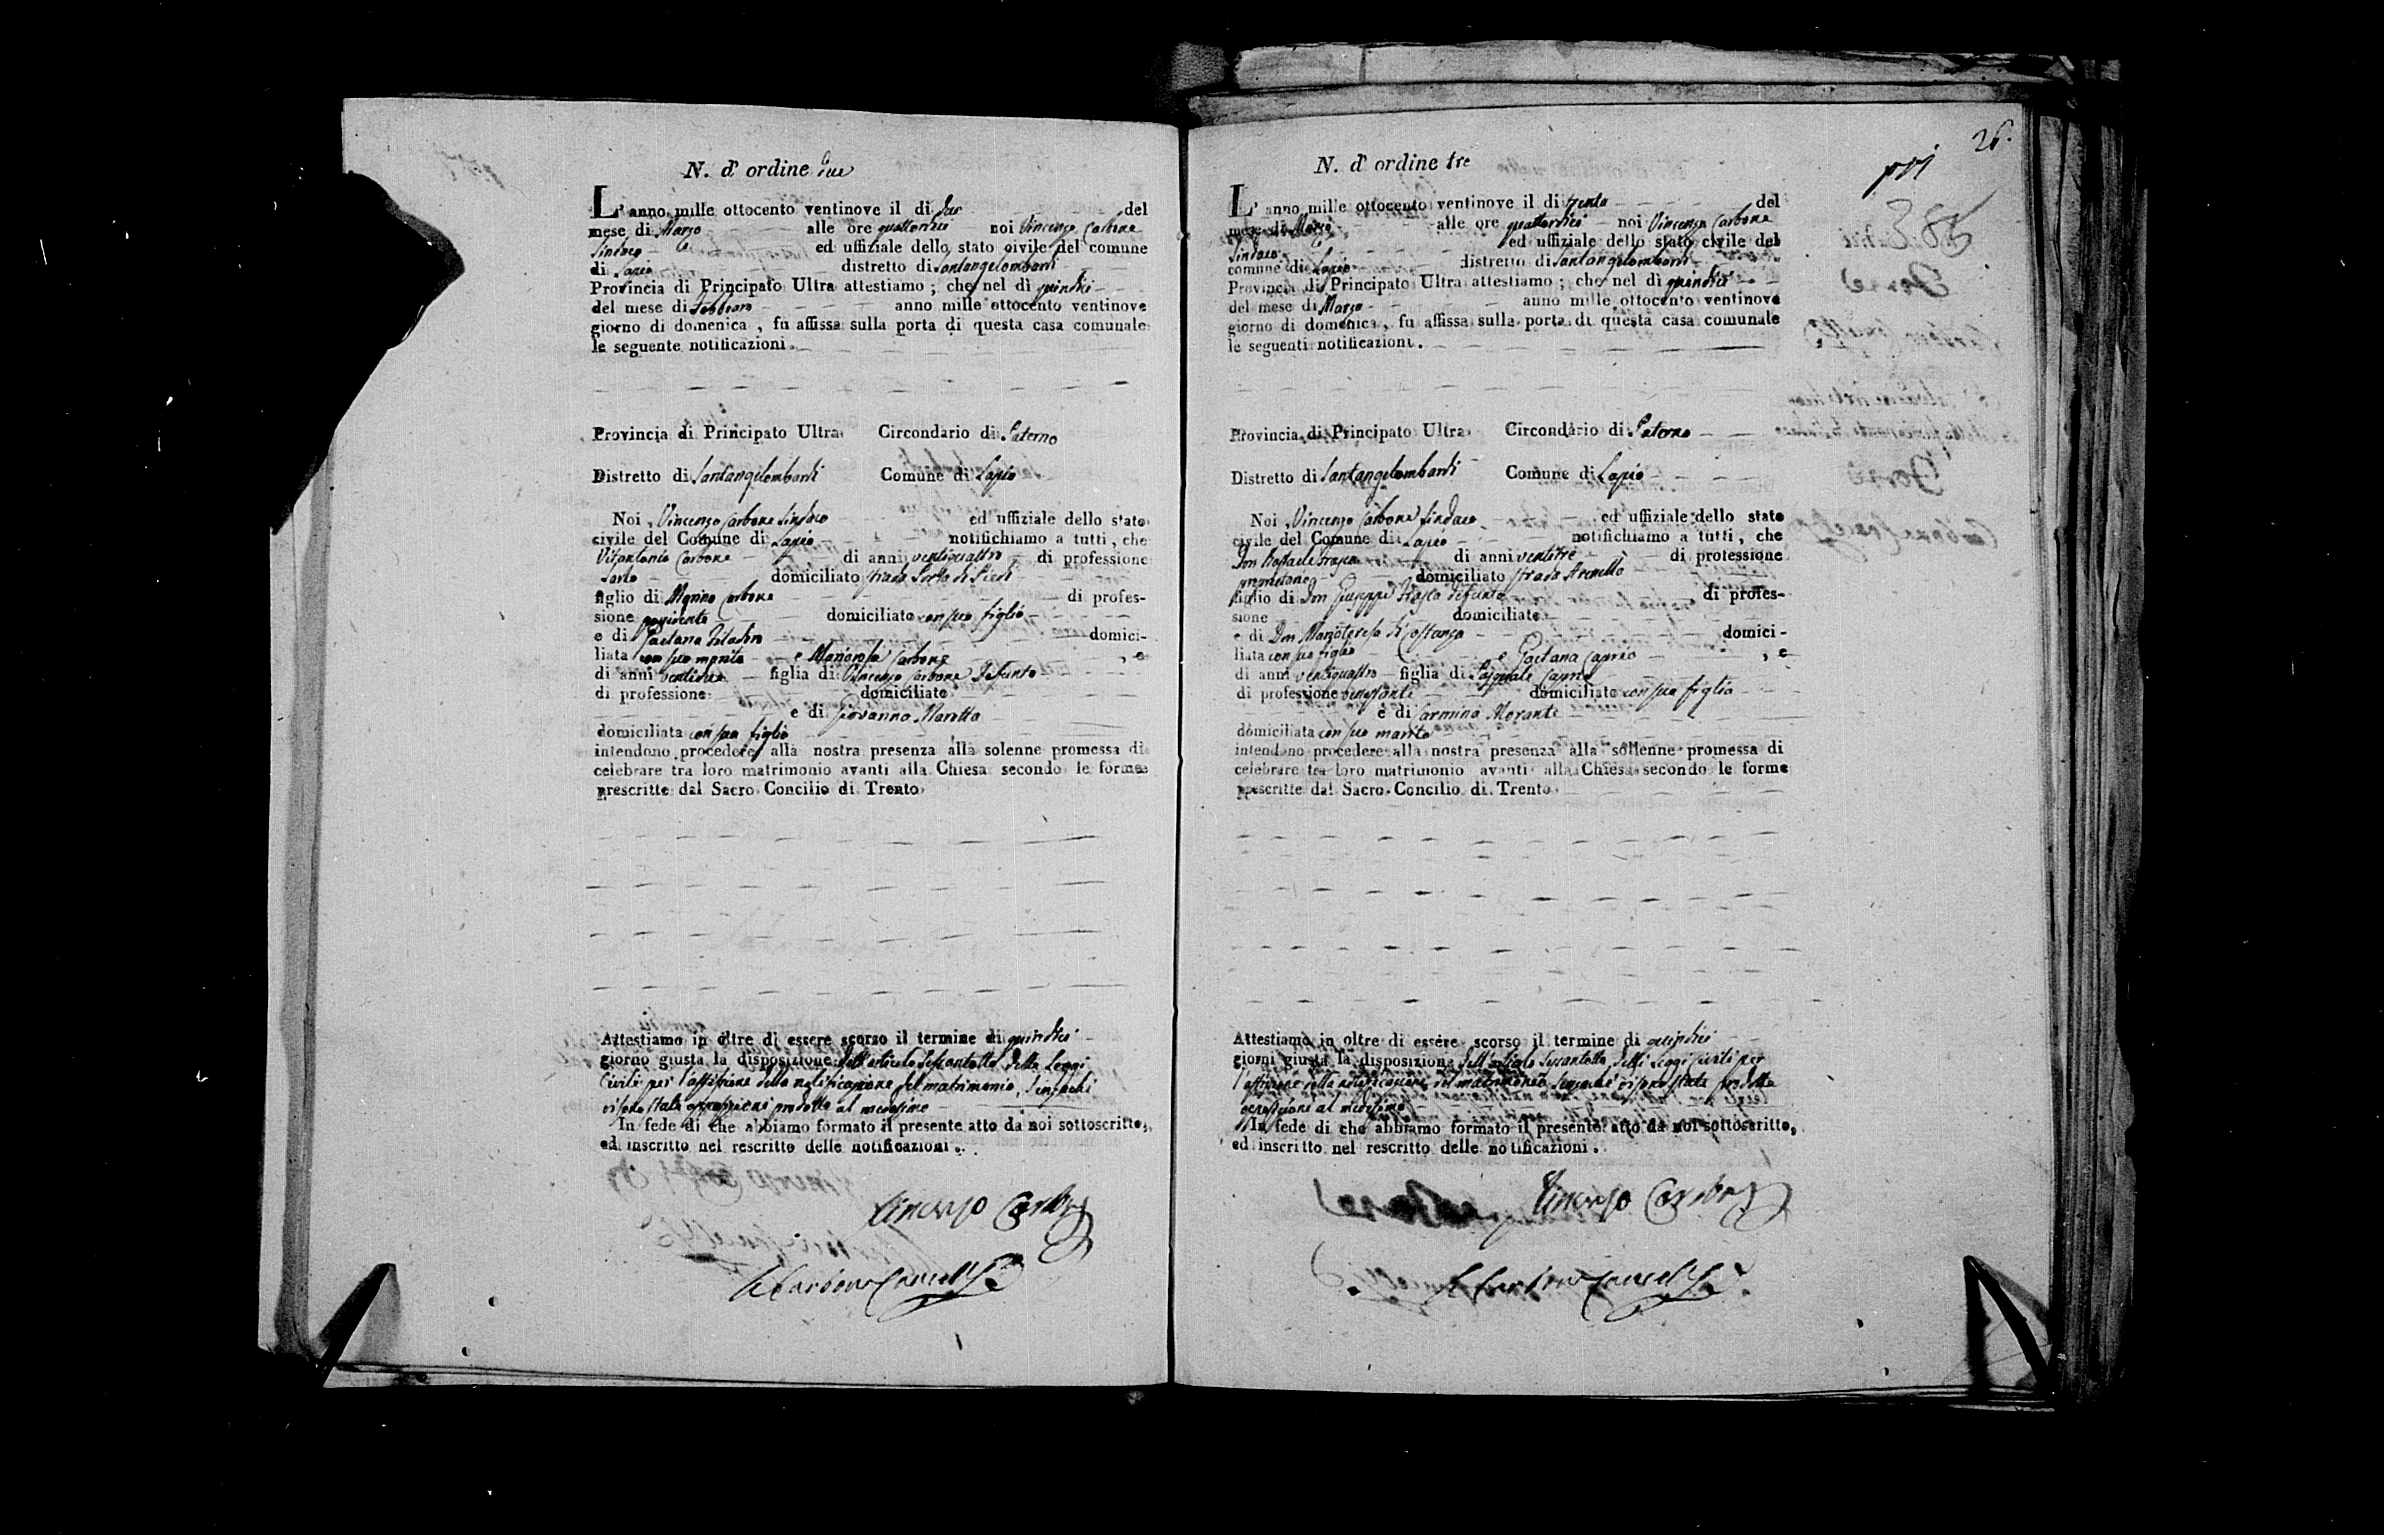 N. d' ordine due
L' anno mille ottocento ventinove il di due del
mese di Marzo alle ore quattordici noi Vincenzo Carbone
Sindaco ed uffiziale dello stato civile del comune
di Lapio distretto di Santangelombardi
Provincia di Principato Ultra attestiamo ; che nel dì quindici
del mese di Febbraro anno mille ottocento ventinove
giorno di domenica , fu affissa sulla porta di questa casa comunale
le seguente notificazioni.
Provincia di Principato Ultra Circondario di Paterno
Distretto di Santangelombardi Comune di Lapio
Noi Vincenzo Carbone Sindaco ed uffiziale dello stato
civile del Comune di Lapio notifichiamo a tutti , che
Vitantonio Carbone di anni ventiquattro di professione
Sarto domiciliato strada Porta di Piedi
figlio di Marino Carbone di profes-
sione domiciliato con suo figlio
e di Gaetana domici-
liata con suo marito e Mariarosa Carbone , e
di anni ventidue figlia di Vincenzo Carbone Defunto
di professione domiciliato
e di Giovanna
domiciliata con sua figlia
intendono procedere alla nostra presenza alla solenne promessa di
celebrare tra loro matrimonio avanti alla Chiesa secondo le forme
prescritte dal Sacro Concilio di Trento
Attestiamo in oltre di essere scorso il termine di quindici
giorno giusta la disposizione dell'articolo sessantotto delle Leggi
Civili per l'affissione della notificazione del matrimonio, senzachè
vi sono state opposizioni prodotte al medesimo
In fede di che abbiamo formato il presente atto da noi sottoscritto,
ed inscritto nel rescritto delle notificazioni.
Vincenzo Carbone
Carbone Cancell.
26.
N. d' ordine tre
L' anno mille ottocento ventinove il di trenta del
mese di Marzo alle ore quattordici noi Vincenzo Carbone
Sindaco ed uffiziale dello stato civile del
comune di Lapio distretto di Santangelombardi
Provincia di Principato Ultra attestiamo ; che nel dì quindici
del mese di Marzo anno mille ottocento ventinove
giorno di domenica , fu affissa sulla porta di questa casa comunale
le seguenti notificazioni.
385
Provincia di Principato Ultra Circondario di Paterno
Distretto di Santangelombardi Comune di Lapio
Noi Vincenzo Carbone Sindaco ed uffiziale dello stato
civile del Comune di Lapio notifichiamo a tutti , che
Don Raffaele di anni ventitrè di professione
proprietario domiciliato strada
figlio di Don Giuseppe defunto di profes-
sione domiciliato
e di Don Mariateresa di Costanzo domici-
liata con suo figlio e Gaetana Caprio , e
di anni ventiquattro figlia di Pasquale Caprio
di professione benestante domiciliato con sua figlia
e di Carmina Morante
domiciliata con suo marito
intendono procedere alla nostra presenza alla sollenne promessa di
celebrare tra loro matrimonio avanti alla Chiesa secondo le forme
prescritte dal Sacro Concilio di Trento
Attestiamo in oltre di essere scorso il termine di quindici
giorni giusta la disposizione dell'articolo sessantotto delli Leggi Civili per
l'affissione della notificazione del matrimonio senzachè vi sono state prodotte
opposizioni al medesimo
In fede di che abbiamo formato il presente atto da noi sottoscritto,
ed inscritto nel rescritto delle notificazioni.
Vincenzo Carbone
Carbone Cancell.